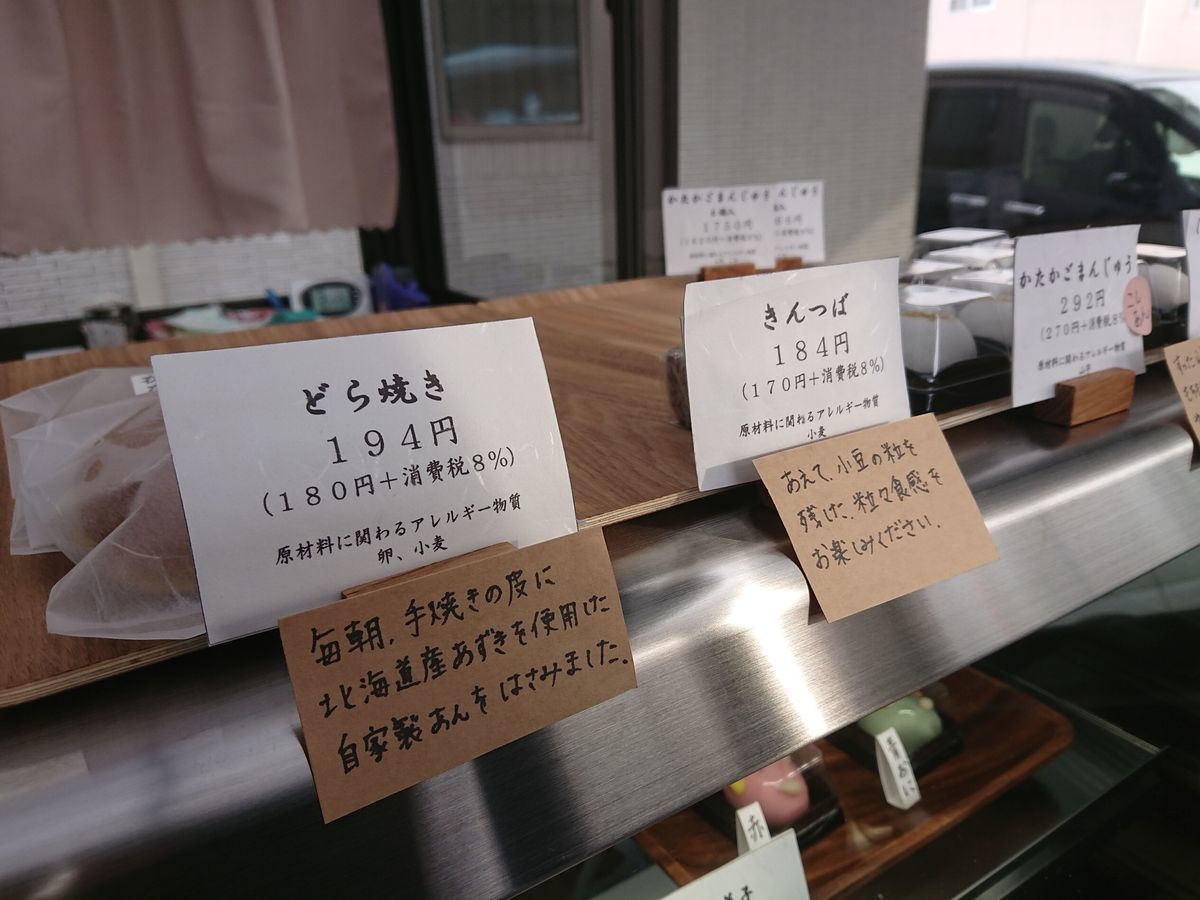 どら焼き
194円
(180円+消費税8%)
原材料に関わるアレルギー物質
卵、小麦
毎朝、手焼きの皮に
北海道産あずきを使用した
自家製あんをはさみました。
きんつば
184円
(170円+消費税8%)
原材料に関わるアレルギー物質
小麦
あえて、小豆の粒を
残した、粒々食感を
お楽しみください。
かたかごまんじゅう
1750円
んじゅう
かたかごまんじゅう
292円
(270円+消費税8%
原材料に関わるアレルギー物質
こし
あん
青おに
赤